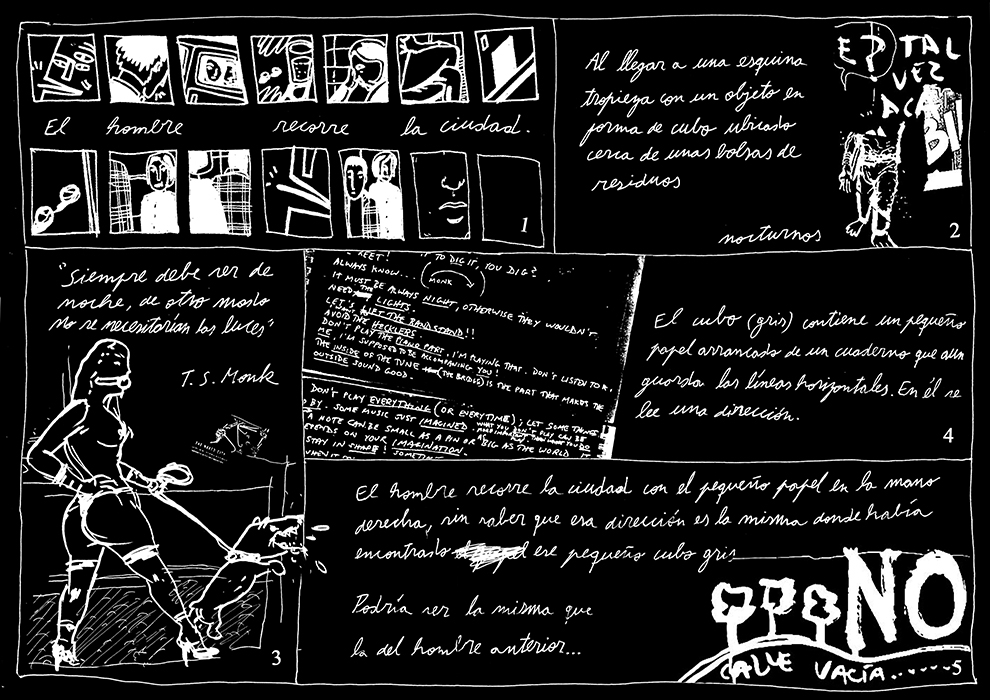 El hombre recorre la ciudad.
1
Al llegar a una esquina
tropieza con un objeto en
forma de cubo ubicado
cerca de unas bolsas de
residuos
nocturnos
E?
TAL
VEZ
ACA
BI
2
"Siempre debe ser de
noche, de otro modo
no se necesitarían las luces"
T.S. Monk
3
TO DIG IT, YOU DIG?
ALWAYS KNOW...
MONK
IT MUST BE ALWAYS NIGHT, OTHERWISE THEY WOULDN'T
NEED THE LIGHTS.
LET'S LIFT THE BANDSTAND!!
AVOID THE HECKLERS.
DON'T PLAY THE PIANO PART, I'M PLAYING THAT. DON'T LISTEN TO
ME, I'M SUPPOSED TO BE ACCOMPANYING YOU!
THE INSIDE OF THE TUNE (THE BRIDGE) IS THE PART THAT MAKES THE
OUTSIDE SOUND GOOD.
DON'T PLAY EVERYTHING (OR EVERYTIME); LET SOME THINGS
BY. SOME MUSIC JUST IMAGINED. WHAT YOU DON'T PLAY CAN BE
A NOTE CAN BE SMALL AS A PIN OR AS BIG AS THE WORLD, IT
ON YOUR IMAGINATION.
STAY IN SHAPE!
El cubo (gris) contiene un pequeño
papel arrancado de un cuaderno que aún
guarda las líneas horizontales. En él se
lee una dirección.
4
El hombre recorre la ciudad con el pequeño papel en la mano
derecha, sin saber que esa dirección es la misma donde había
encontrado ese pequeño cubo gris
Podría ser la misma que
la del hombre anterior...
NO
CALLE VACÍA.......
5